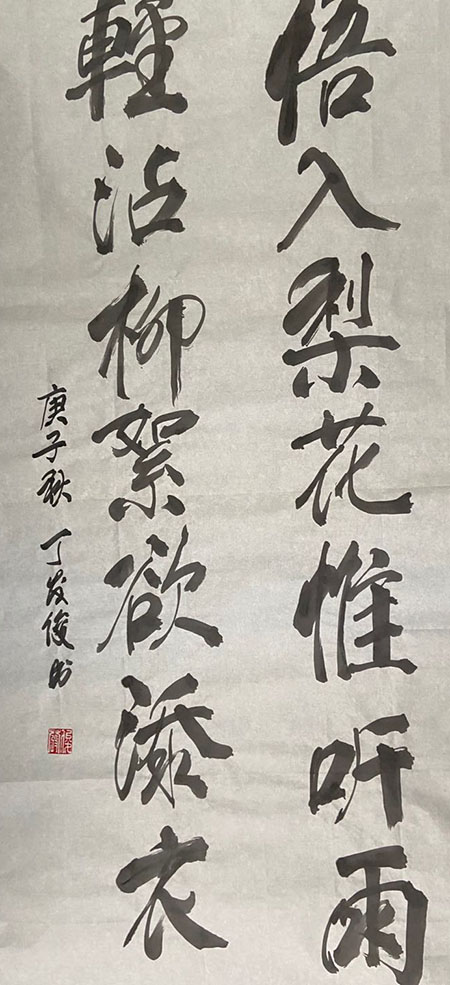 悟入梨花惟听雨
輕沾柳絮欲添衣
庚子秋 丁友俊书